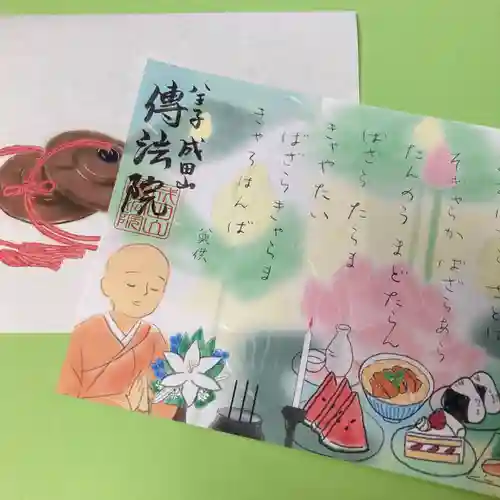 さとば
そぎゃらか ばざらあら
たんのう まどたらん
ばざら たらま
きゃやたい
ばざら きゃらま
きゃろはんば
奠供
八王子 成田山
傳法院